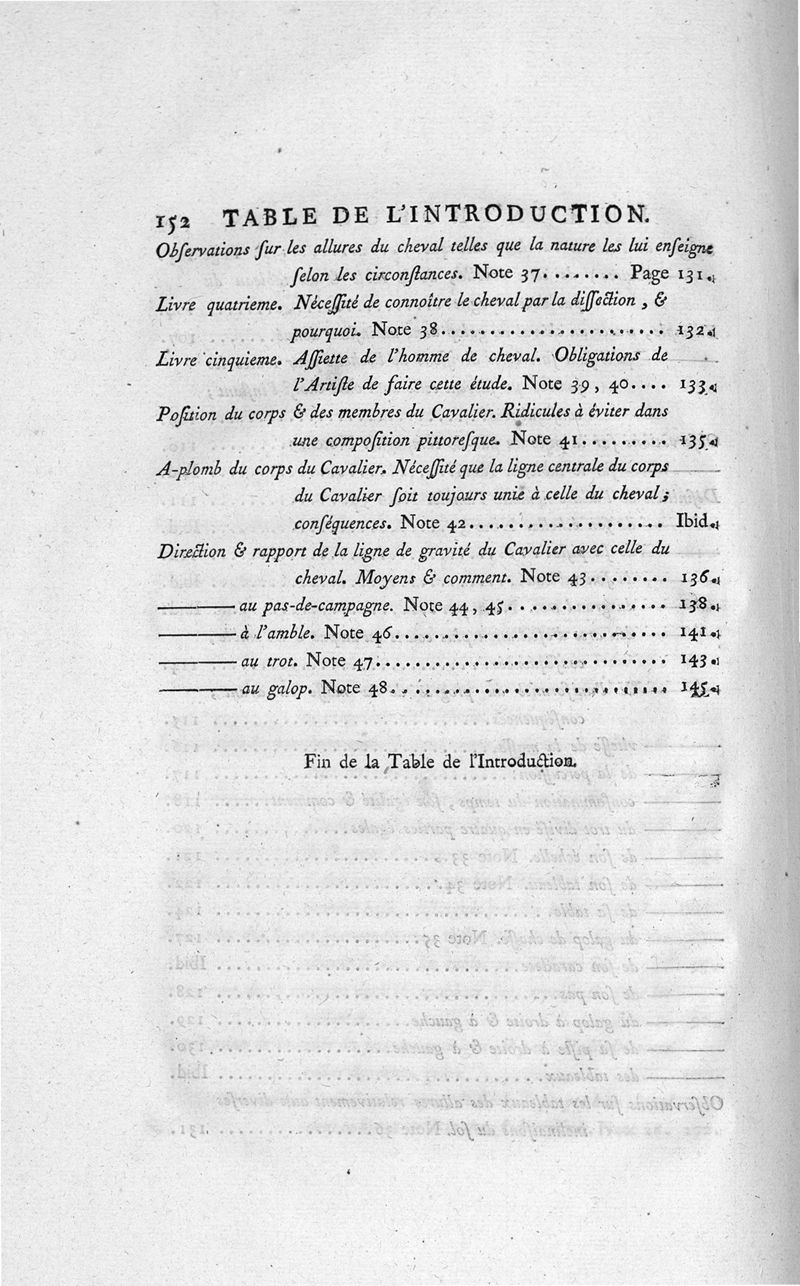 152 TABLE DE L'INTRODUCTION.
Obſervations ſur les allures du cheval telles que la nature les lui enſeigne
ſelon les circonſtances. Note 37. ....... Page 131.
Livre quatrieme. Néceſſité de connoître le cheval par la diſſection, &
pourquoi. Note 38....................... 132.
Livre cinquieme. Aſſiette de l'homme de cheval. Obligations de
l'Artiſte de faire cette étude. Note 39, 40.... 133.
Poſition du corps & des membres du Cavalier. Ridicules à éviter dans
une compoſition pittoreſque. Note 41......... 135.
A-plomb du corps du Cavalier. Néceſſité que la ligne centrale du corps
du Cavalier ſoit toujours unie à celle du cheval;
conſéquences. Note 42.................... Ibid.
Direction & rapport de la ligne de gravité du Cavalier avec celle du
cheval. Moyens & comment. Note 43........ 136.
——— au pas-de-campagne. Note 44, 45................ 138.
——— à l'amble. Note 46............................ 141.
——— au trot. Note 47.............................. 143.
——— au galop. Note 48............................. 145.
Fin de la Table de l'Introduction.